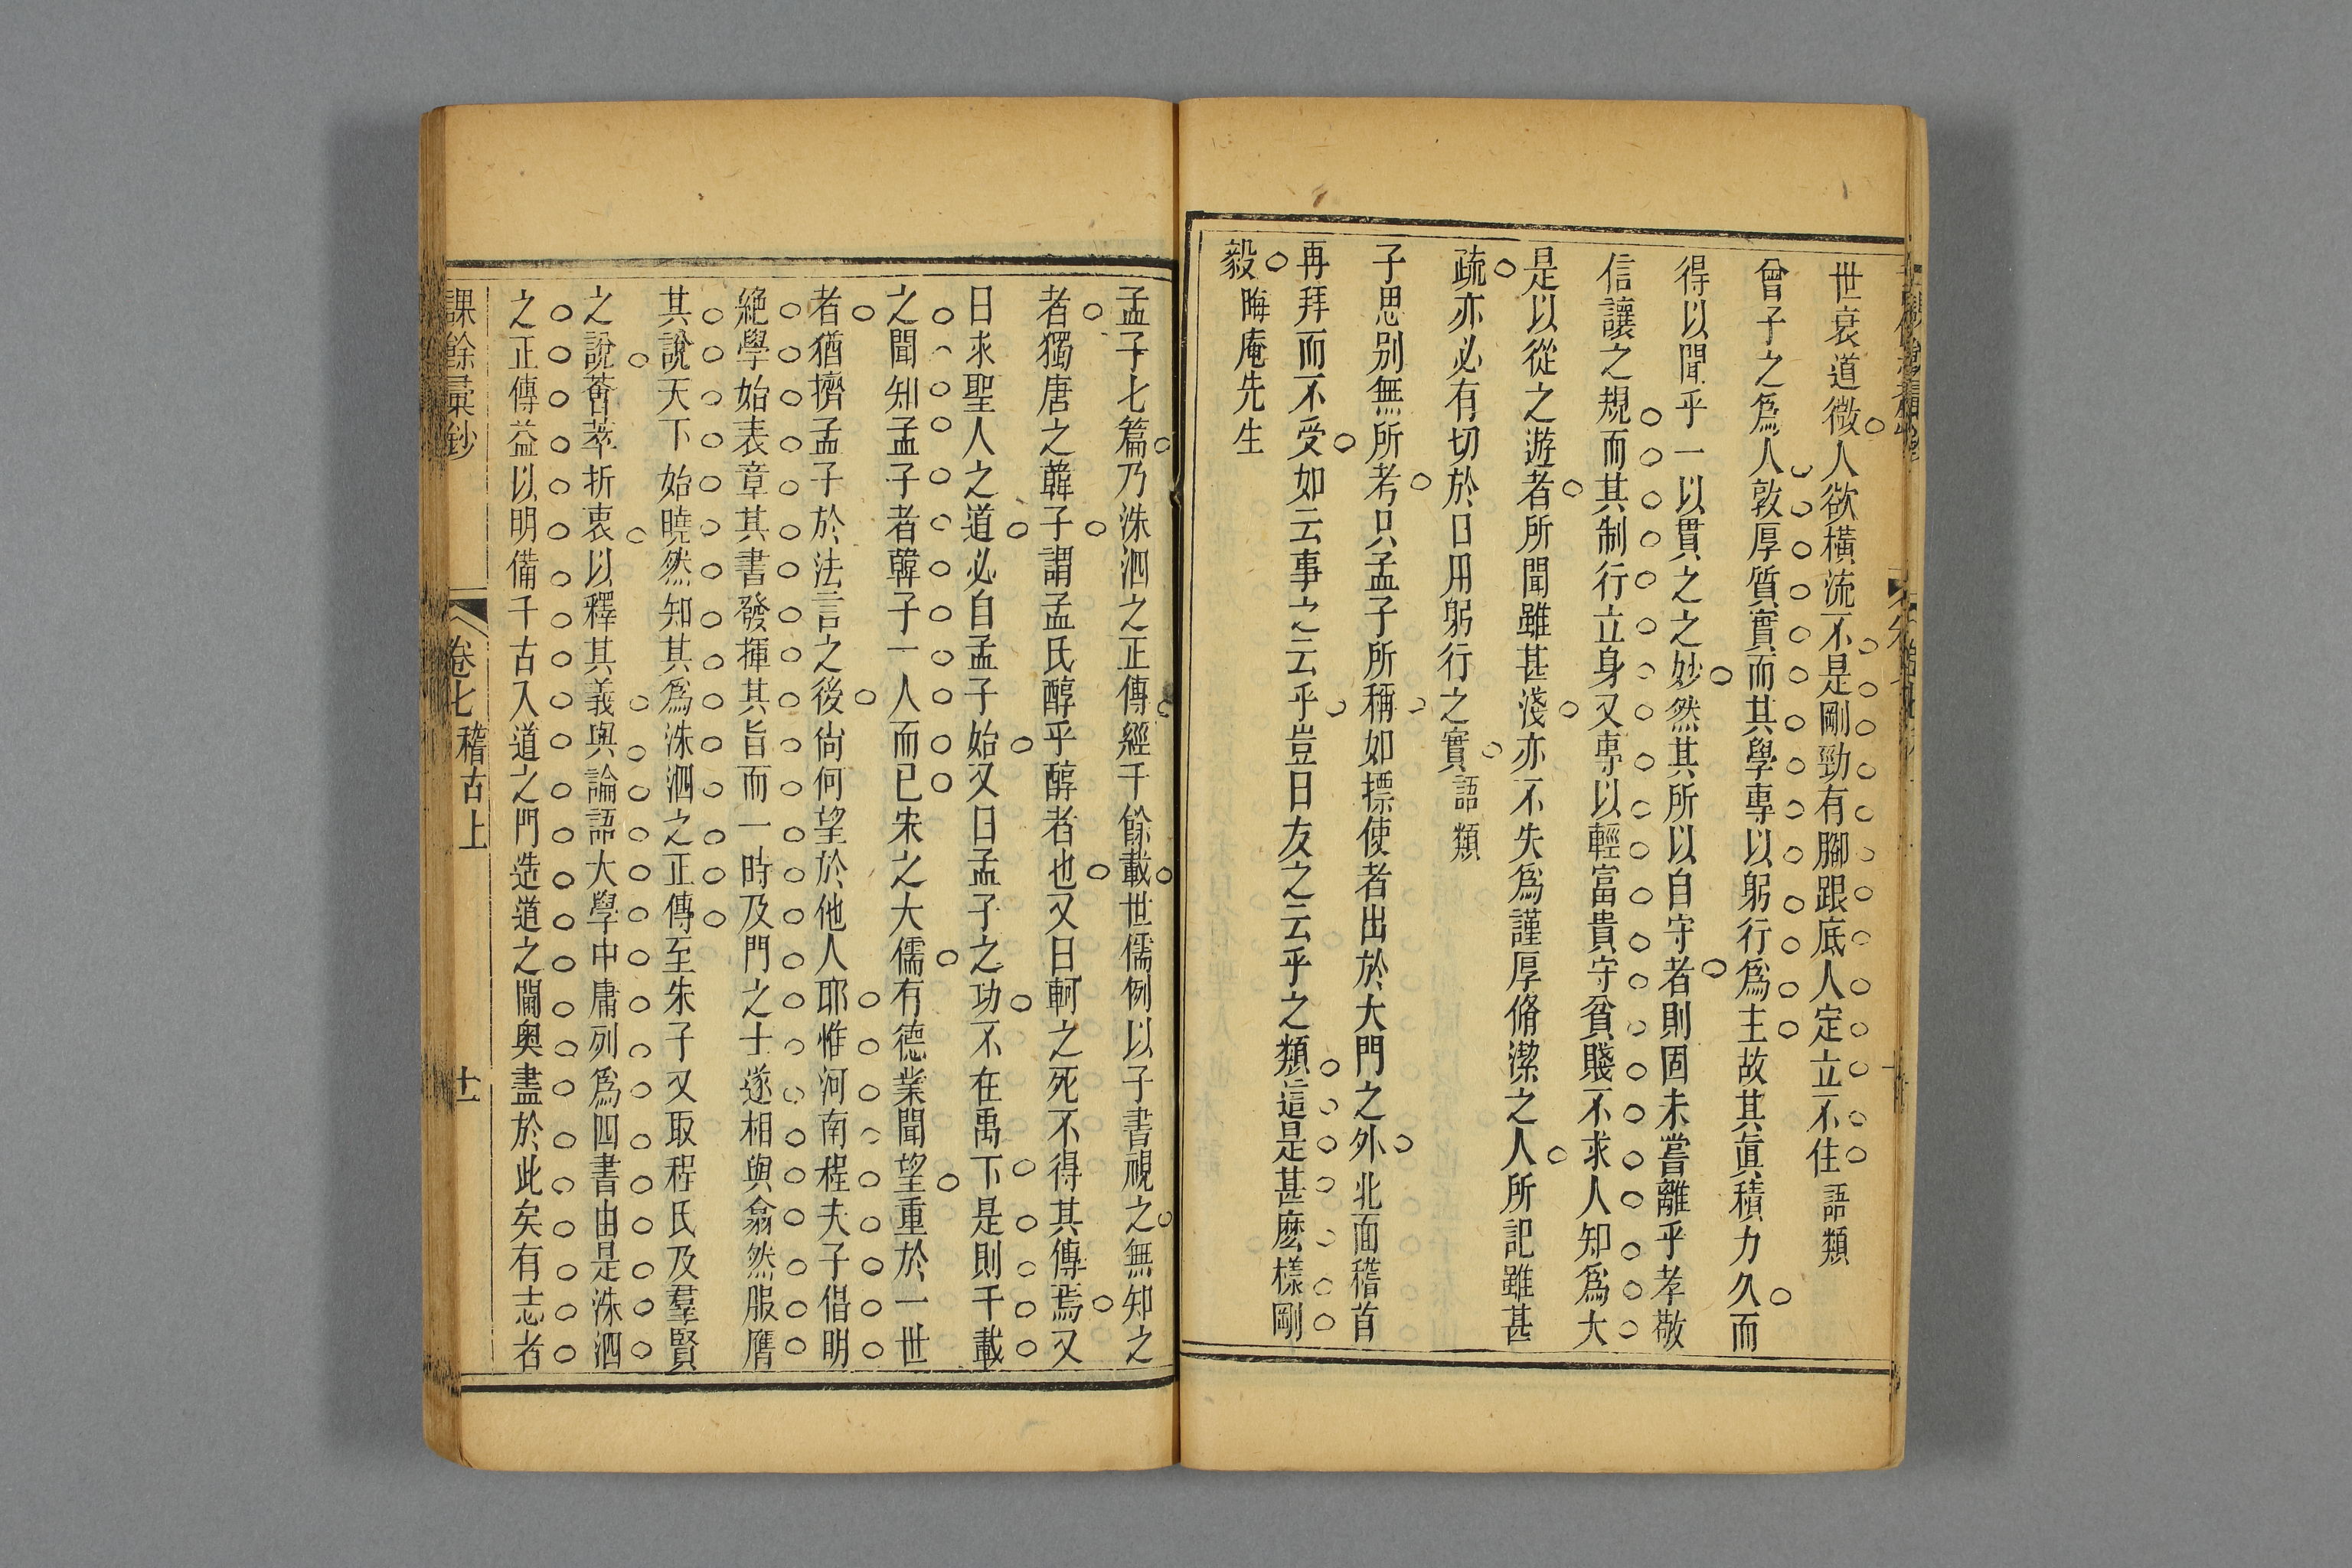 世衰道微人欲橫流不是剛勁有腳跟底人定立不住語類
曾子之爲人敦厚質實而其學專以躬行爲主故其眞積力久而
得以聞乎一以貫之之妙然其所以自守者則固未嘗離乎孝敬
信讓之規而其制行立身又專以輕富貴守貧賤不求人知爲大
是以從之遊者所聞雖甚淺亦不失爲謹厚脩潔之人所記雖甚
疏亦必有切於日用躬行之實語類
子思别無所考只孟子所稱如摽使者出於大門之外北面稽首
再拜而不受如云事之云乎豈曰友之云乎之類這是甚麽樣剛
毅晦庵先生
孟子七篇乃洙泗之正傳經千餘載世儒例以子書視之無知之
者獨唐之韓子謂孟氏醇乎醇者也又曰軻之死不得其傳焉又
曰求聖人之道必自孟子始又曰孟子之功不在禹下是則千載
之聞知孟子者韓子一人而已宋之大儒有德業聞望重於一世
者猶擠孟子於法言之後尙何望於他人耶惟河南程夫子倡明
絶學始表章其書發揮其旨而一時及門之士遂相與翕然服膺
其說天下始曉然知其爲洙泗之正傳至朱子又取程氏及羣賢
之說薈萃折衷以釋其義與論語大學中庸列爲四書由是洙泗
之正傳益以明備千古入道之門造道之閫奧盡於此矣有志者
課餘彙鈔 卷七 稽古上 十一